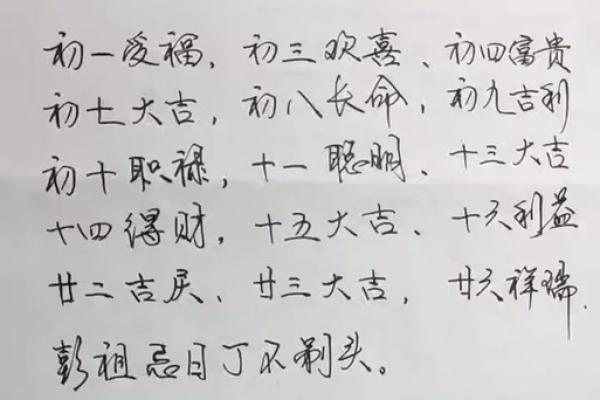 初一受福，初三欢喜、初四富贵
初七大吉，初八长命，初九吉利
初十职禄，十一聪明、十三大吉
十四得财，十五大吉、十六利益
廿二吉庆、廿三大吉，廿六祥瑞.
彭祖忌日丁不剃头。